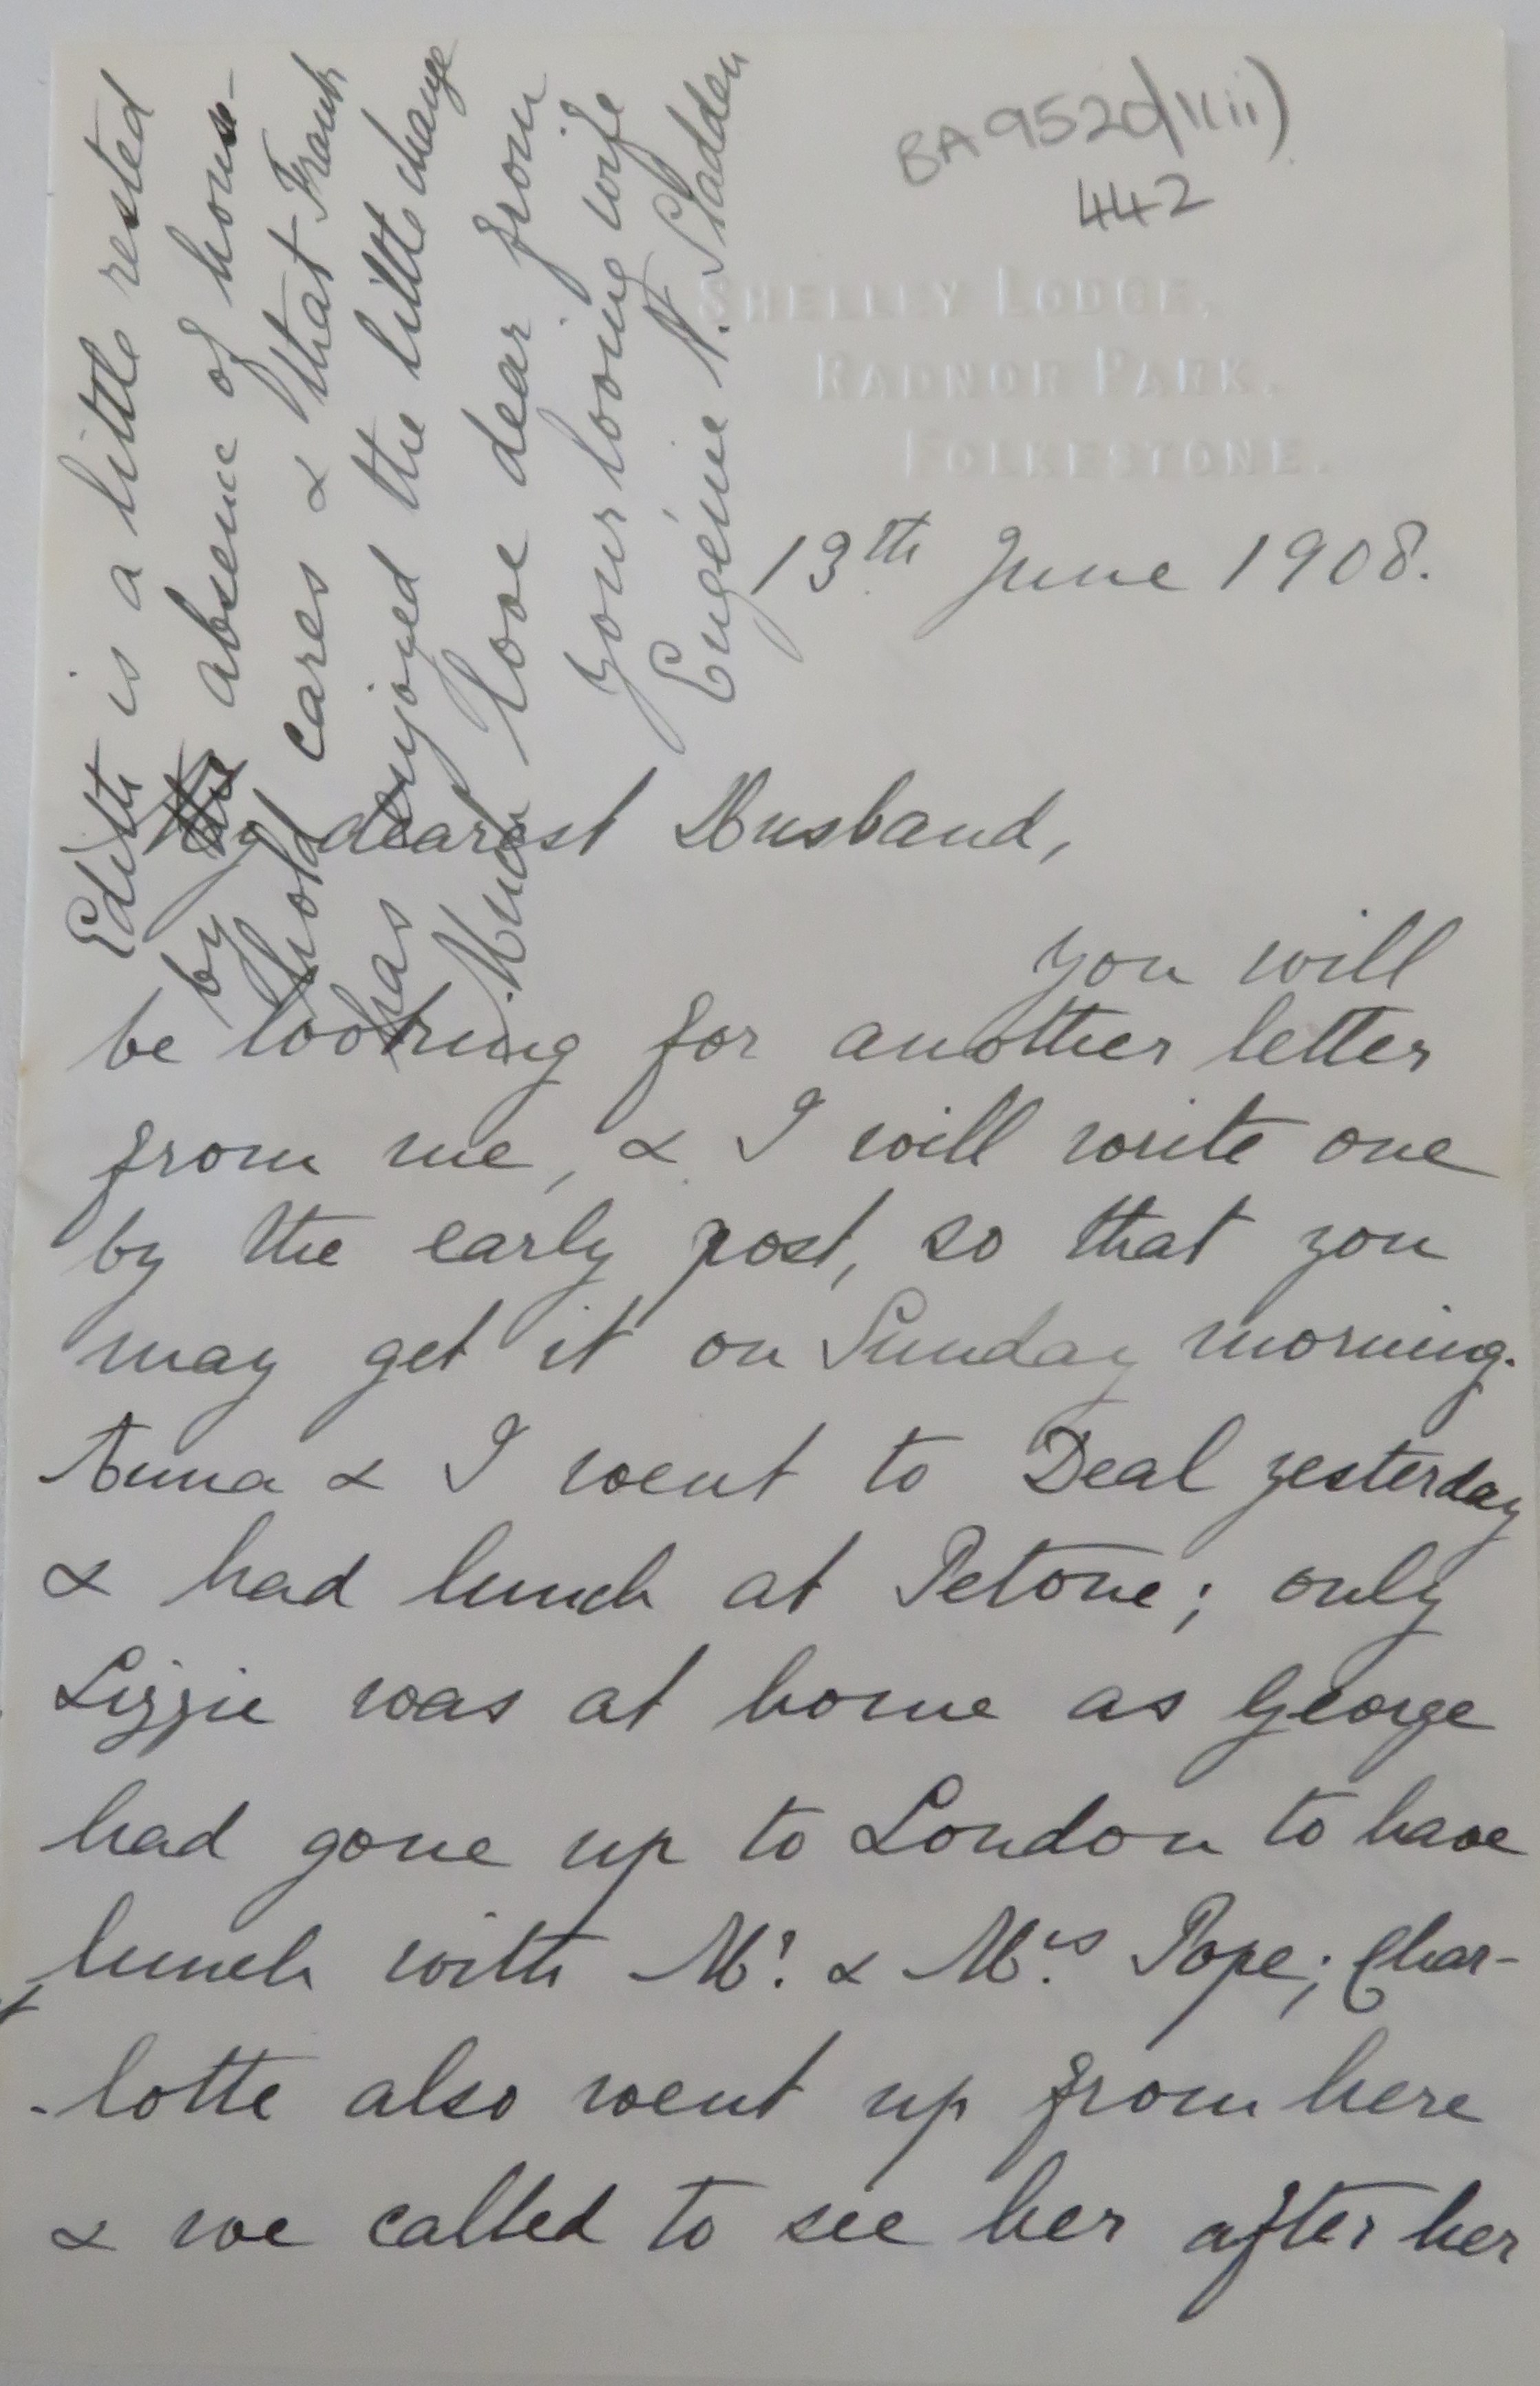 BA 9520/1(iii)
442
SHELLEY LODGE,
RADNOR PARK,
FOLKESTONE.
13th June 1908.
My dearest Husband,
you will
be looking for another letter
from me, & I will write one
by the early post, so that you
may get it on Sunday morning.
Anna & I went to Deal yesterday
& had lunch at Petone; only
Lizzie was at home as George
had gone up to London to have
lunch with Mr. & Mrs. Pope; Char-
-lotte also went up from here
& we called to see her after her
Edith is a little rested
by absence of house-
hold cares & that Frank
has enjoyed the little change
Much love dear from
your loving wife
Eugénie N. Sladden